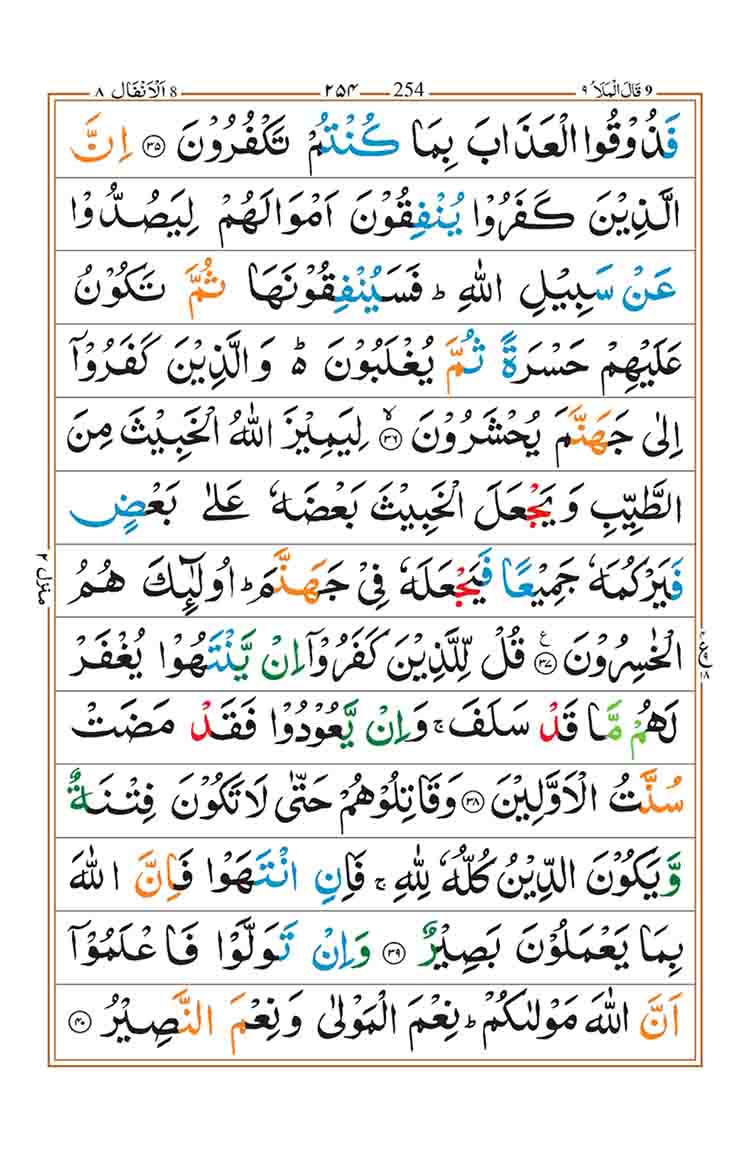 9 قَالَ الْمَلَاُ ٩ 254 ۲۵۴ 8 اَلْاَنْفَال ٨
فَذُوْقُوا الْعَذَابَ بِمَا كُنْتُمْ تَكْفُرُوْنَ ۝۳۵ اِنَّ
الَّذِيْنَ كَفَرُوْا يُنْفِقُوْنَ اَمْوَالَهُمْ لِيَصُدُّوْا
عَنْ سَبِيْلِ اللّٰهِ ؕ فَسَيُنْفِقُوْنَهَا ثُمَّ تَكُوْنُ
عَلَيْهِمْ حَسْرَةً ثُمَّ يُغْلَبُوْنَ ۬ؕ وَالَّذِيْنَ كَفَرُوْۤا
اِلٰى جَهَنَّمَ يُحْشَرُوْنَ ۝۳۶ۙ لِيَمِيْزَ اللّٰهُ الْخَبِيْثَ مِنَ
الطَّيِّبِ وَيَجْعَلَ الْخَبِيْثَ بَعْضَهٗ عَلٰى بَعْضٍ
فَيَرْكُمَهٗ جَمِيْعًا فَيَجْعَلَهٗ فِيْ جَهَنَّمَ ؕ اُولٰٓئِكَ هُمُ
الْخٰسِرُوْنَ ۝۳۷ قُلْ لِّلَّذِيْنَ كَفَرُوْۤا اِنْ يَّنْتَهُوْا يُغْفَرْ
لَهُمْ مَّا قَدْ سَلَفَ ۚ وَاِنْ يَّعُوْدُوْا فَقَدْ مَضَتْ
سُنَّتُ الْاَوَّلِيْنَ ۝۳۸ وَقَاتِلُوْهُمْ حَتّٰى لَا تَكُوْنَ فِتْنَةٌ
وَّيَكُوْنَ الدِّيْنُ كُلُّهٗ لِلّٰهِ ۚ فَاِنِ انْتَهَوْا فَاِنَّ اللّٰهَ
بِمَا يَعْمَلُوْنَ بَصِيْرٌ ۝۳۹ وَاِنْ تَوَلَّوْا فَاعْلَمُوْۤا
اَنَّ اللّٰهَ مَوْلٰىكُمْ ؕ نِعْمَ الْمَوْلٰى وَنِعْمَ النَّصِيْرُ ۝۴۰
منزل ۲
ع ۱۸